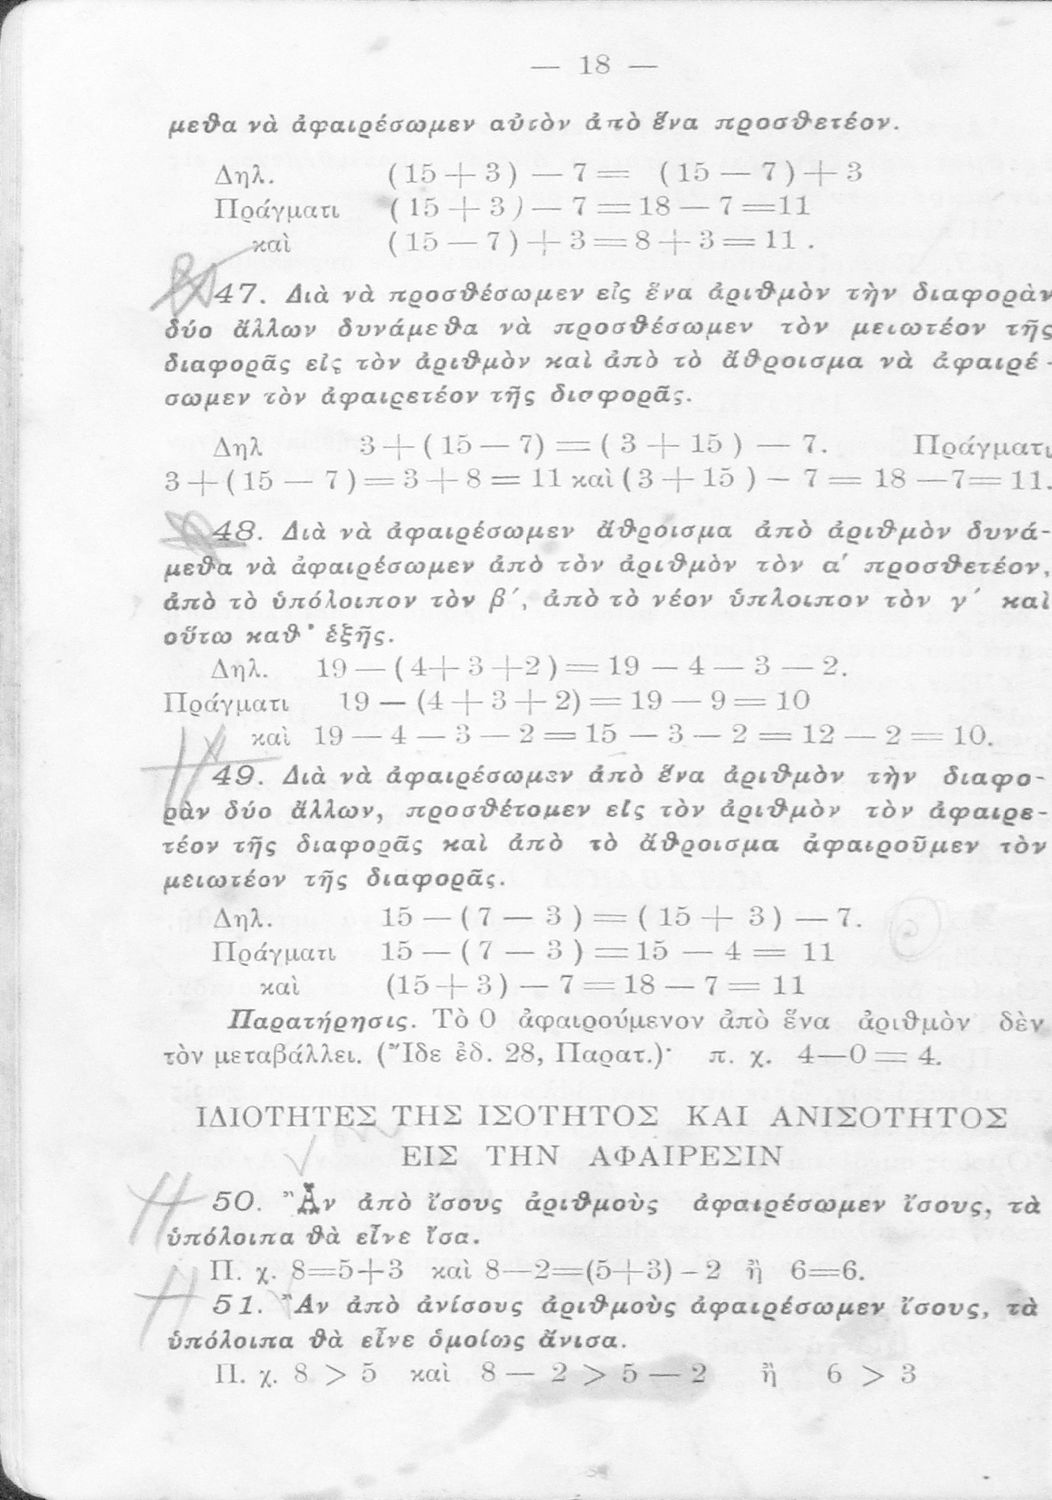 — 18 —
μεθα νὰ ἀφαιρέσωμεν αὐτὸν ἀπὸ ἕνα προσθετέον.
Δηλ. (15+3) — 7= (15 — 7)+3
Πράγματι (15+3)—7=18—7=11
καὶ (15—7)+3=8+3=11.
47. Διὰ νὰ προσθέσωμεν εἰς ἕνα ἀριθμὸν τὴν διαφορὰν
δύο ἄλλων δυνάμεθα νὰ προσθέσωμεν τὸν μειωτέον τῆς
διαφορᾶς εἰς τὸν ἀριθμὸν καὶ ἀπὸ τὸ ἄθροισμα νὰ ἀφαιρέ-
σωμεν τὸν ἀφαιρετέον τῆς δισφορᾶς.
Δηλ 3+(15—7)=(3+15)—7. Πράγματι
3+(15—7)=3+8=11 καὶ (3+15)—7=18—7=11.
48. Διὰ νὰ ἀφαιρέσωμεν ἄθροισμα ἀπὸ ἀριθμὸν δυνά-
μεθα νὰ ἀφαιρέσωμεν ἀπὸ τὸν ἀριθμὸν τὸν α΄ προσθετέον,
ἀπὸ τὸ ὑπόλοιπον τὸν β΄, ἀπὸ τὸ νέον ὑπλοιπον τὸν γ΄ καὶ
οὕτω καθ' ἑξῆς.
Δηλ. 19—(4+3+2)=19—4—3—2.
Πράγματι 19—(4+3+2)=19—9=10
καὶ 19—4—3—2=15—3—2=12—2=10.
49. Διὰ νὰ ἀφαιρέσωμεν ἀπὸ ἕνα ἀριθμὸν τὴν διαφο-
ρὰν δύο ἄλλων, προσθέτομεν εἰς τὸν ἀριθμὸν τὸν ἀφαιρε-
τέον τῆς διαφορᾶς καὶ ἀπὸ τὸ ἄθροισμα ἀφαιροῦμεν τὸν
μειωτέον τῆς διαφορᾶς.
Δηλ. 15—(7—3)=(15+3)—7.
Πράγματι 15—(7—3)=15—4=11
καὶ (15+3)—7=18—7=11
Παρατήρησις. Τὸ 0 ἀφαιρούμενον ἀπὸ ἕνα ἀριθμὸν δὲν
τὸν μεταβάλλει. (Ἴδε ἐδ. 28, Παρατ.)· π. χ. 4—0=4.
ΙΔΙΟΤΗΤΕΣ ΤΗΣ ΙΣΟΤΗΤΟΣ ΚΑΙ ΑΝΙΣΟΤΗΤΟΣ
ΕΙΣ ΤΗΝ ΑΦΑΙΡΕΣΙΝ
50. Ἂν ἀπὸ ἴσους ἀριθμοὺς ἀφαιρέσωμεν ἴσους, τὰ
ὑπόλοιπα θὰ εἶνε ἴσα.
Π. χ. 8=5+3 καὶ 8—2=(5+3)-2 ἢ 6=6.
51. Ἂν ἀπὸ ἀνίσους ἀριθμοὺς ἀφαιρέσωμεν ἴσους, τὰ
ὑπόλοιπα θὰ εἶνε ὁμοίως ἄνισα.
Π. χ. 8 > 5 καὶ 8 — 2 > 5 — 2 ἢ 6 > 3